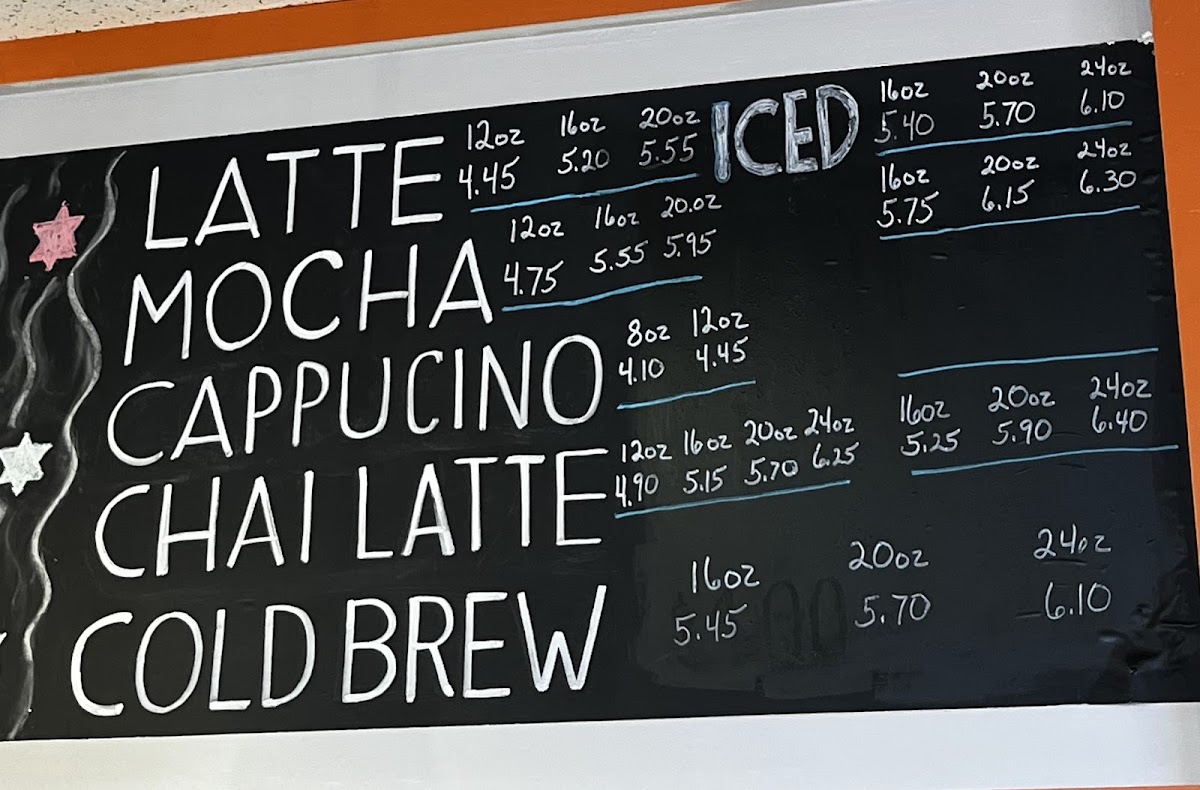 LATTE 12oz 16oz 20oz ICED 16oz 20oz 24oz
4.45 5.20 5.55 5.40 5.70 6.10
MOCHA 12oz 16oz 20.oz 16oz 20oz 24oz
4.75 5.55 5.95 5.75 6.15 6.30
CAPPUCINO 8oz 12oz
4.10 4.45
CHAI LATTE 12oz 16oz 20oz 24oz 16oz 20oz 24oz
4.90 5.15 5.70 6.25 5.25 5.90 6.40
COLD BREW 16oz 20oz 24oz
5.45 5.70 6.10